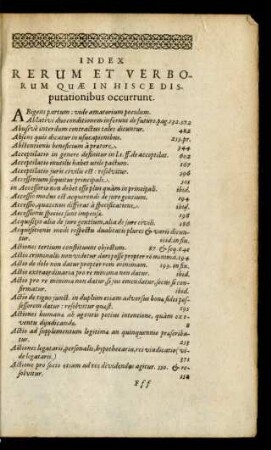 INDEX
RERUM ET VERBO-
RUM QUÆ IN HISCE DIS-
putationibus occurrunt.
ABigens partum: unde amatorium poculum.
Ablativi duo conditionem inferunt de futuro. pag. 192. 272
Abusivè interdum contractus tales dicuntur. 482
Absens quis dicatur in usucapionibus. 213. pr.
Abstentionis beneficium à prætore. 244
Acceptilatio in genere definitur in l. 1. ff. de acceptilat. 602
Acceptilatio inutilis habet utile pactum: 167
Acceptilatio juris civilis est: resolvitur. 596
Accessorium sequitur principale. 101
in Accessorio non debet esse plus quàm in principali. ibid.
Accessio modus est acquirendi de jure gentium. 194
Accessio quatenus differat à specificatione. ibid.
Accessiones fructus sunt impensa. 198
Acquisitio alia de jure gentium, alia de jure civili. 186
Acquisitionis modi respectu dualitatis plures & varii dicuntur.
ibid. in fin.
Actiones tertium constituunt objectum. 27 & seq. 541
Actio criminalis non videtur dari posse propter romina. 194
Actio de dolo non datur propter rem minimam. 193. in fin.
Actio extraordinaria pro re minima non datur. ibid.
Actio pro re minima non datur, si suo emendatur, secus si con-
firmatur. ibid.
Actio de tigno junct. in duplum etiam adversus bonæ fidei pos-
sessorem datur: resolvitur quæst. 195
Actiones humana ab agentis potius intentione, quàm ex e-
ventu dijudicanda. 2
Actio ad supplementum legitima an quinquennio præscriba-
tur. 235
Actiones legatarii, personalis, hypothecaria, rei vindicatio (vi-
de legatarii.) 371
Actione pro socio etiam ad res dividendas agitur. 120. & re-
solvitur. 122
Fff